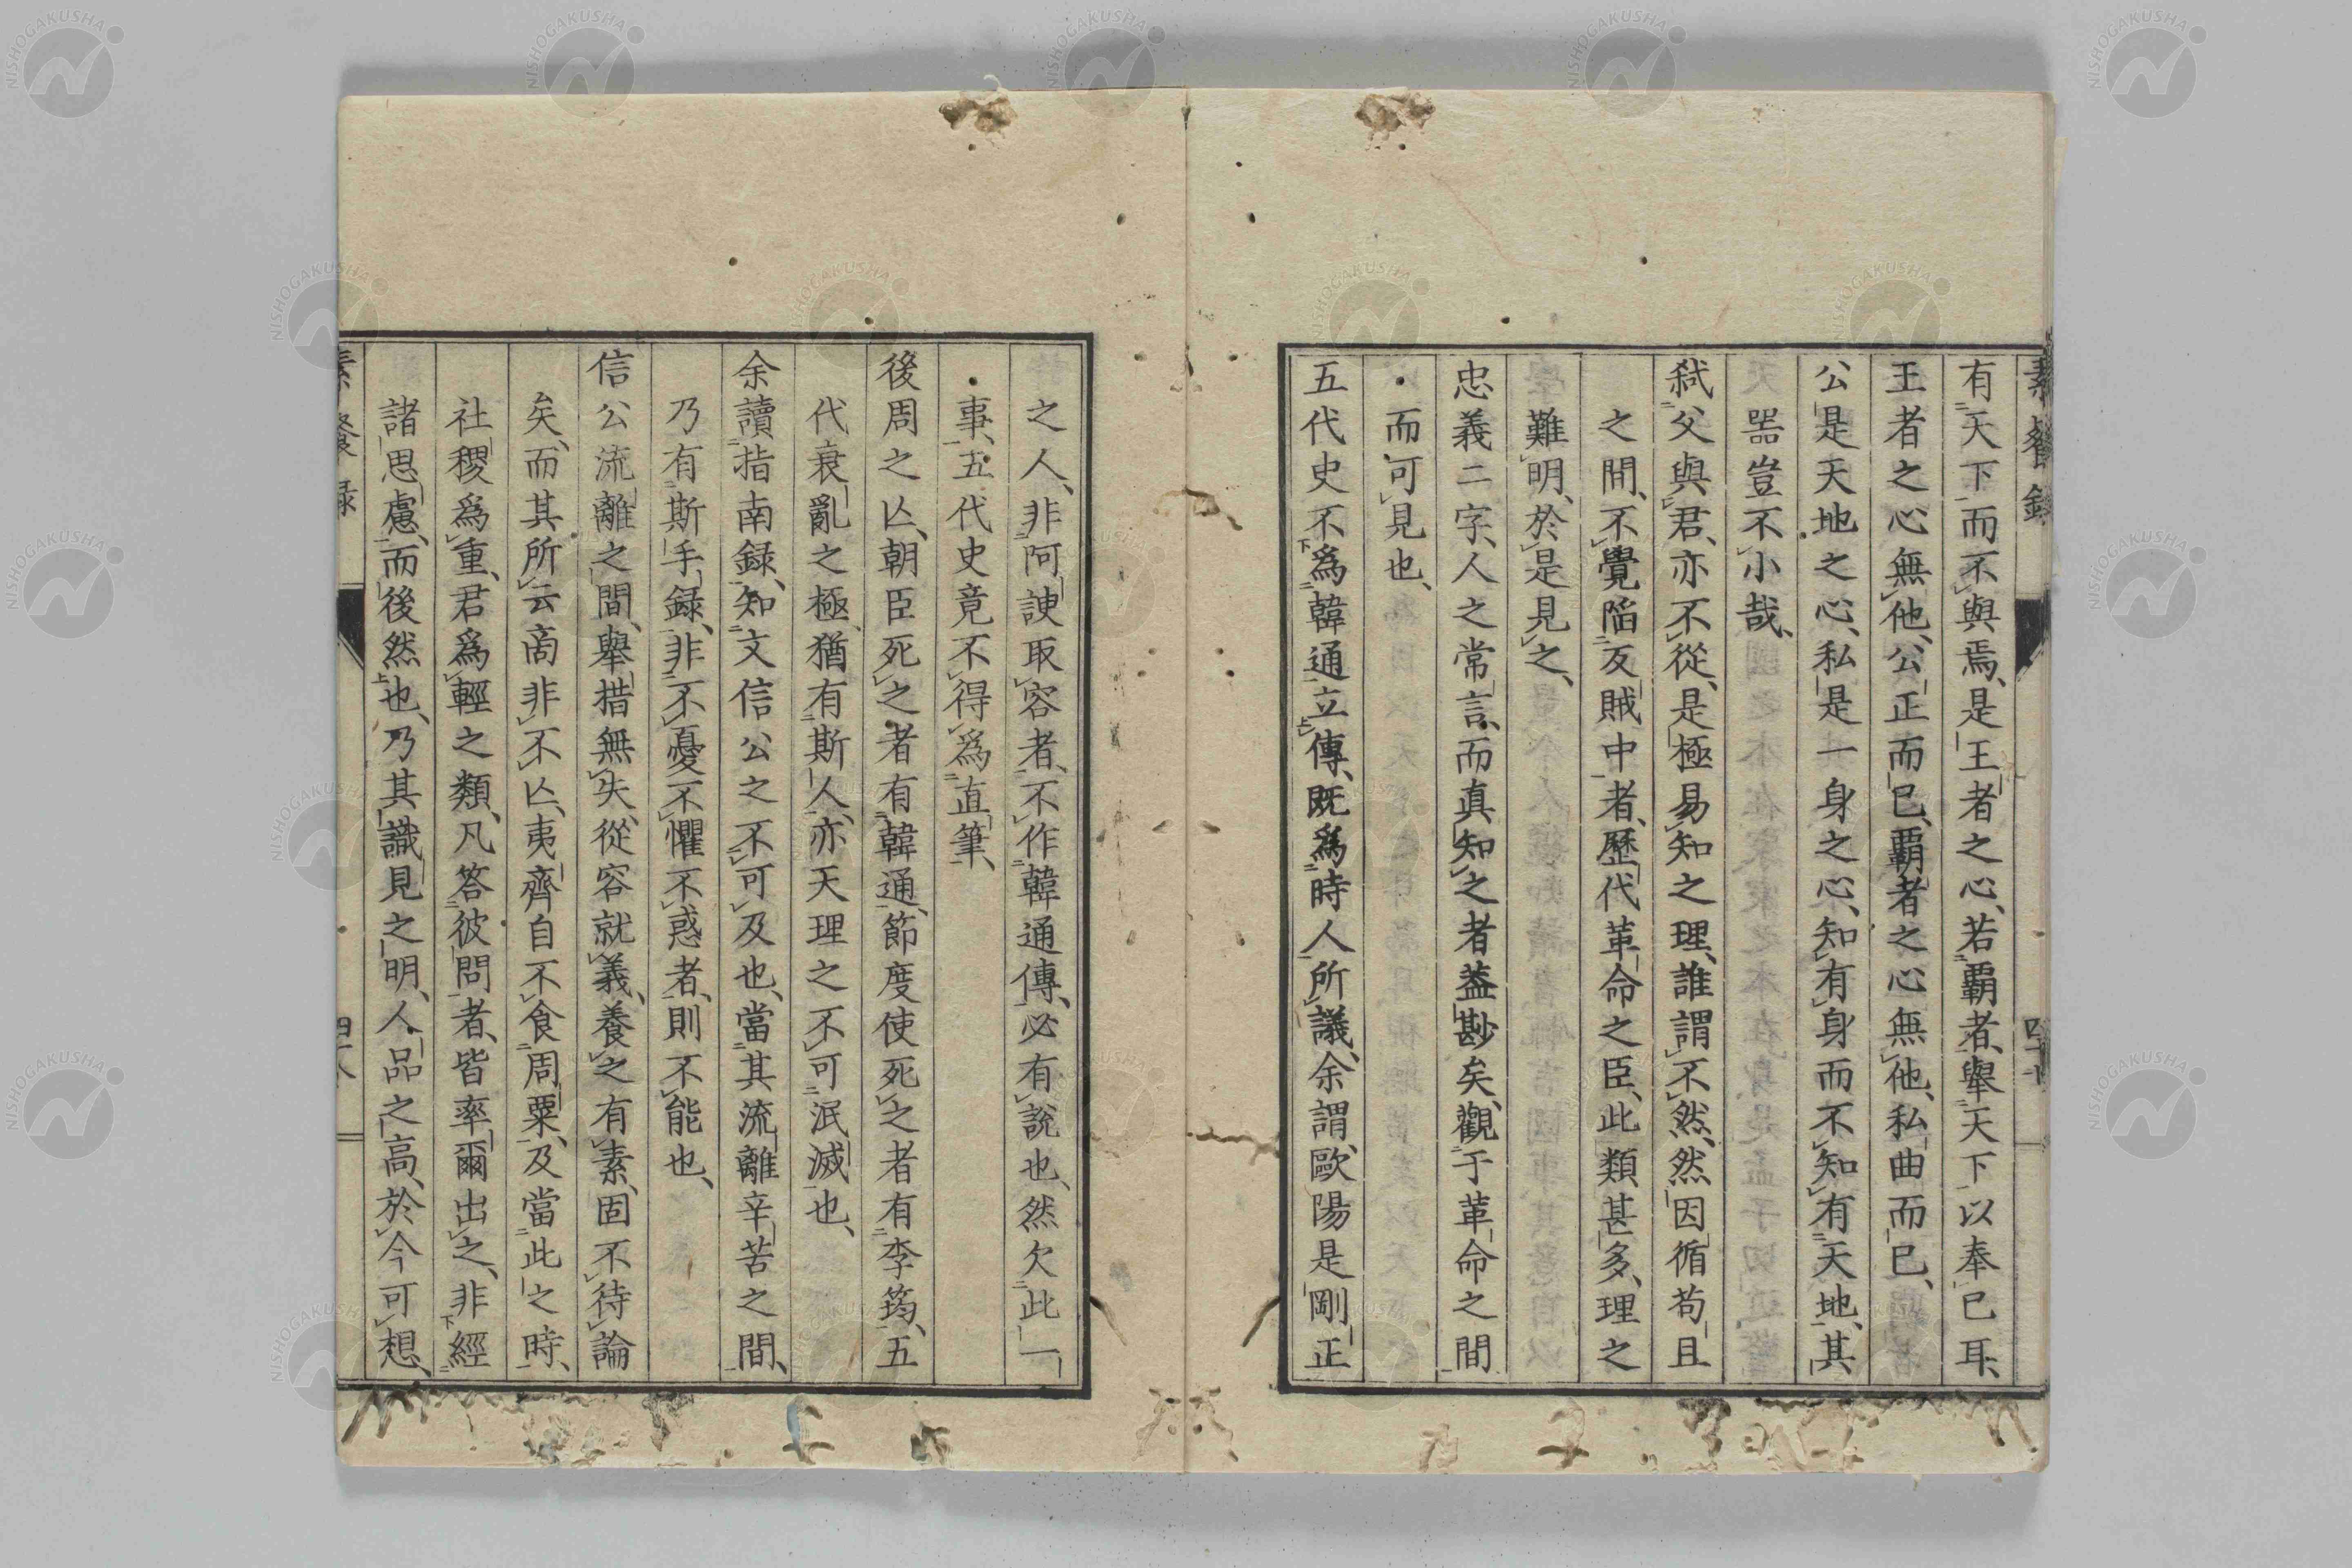 素餐錄
有天下而不與焉、是王者之心、若霸者、舉天下以奉己耳、
王者之心無他、公正而已、覇者之心無他、私曲而已、
公是天地之心、私是一身之心、知有身而不知有天地、其
噐豈不小哉、
弒父與君、亦不從、是極易知之理、誰謂不然、然因循苟且
之間、不覺陷反賊中者、歷代革命之臣、此類甚多、理之
難明、於是見之、
忠義二字、人之常言、而真知之者蓋尠矣、觀于革命之間
而可見也、
五代史不爲韓通立傳、既爲時人所議、余謂、歐陽是剛正
之人、非阿諛取容者、不作韓通傳、必有說也、然欠此一
事、五代史竟不得爲直筆、
後周之亾、朝臣死之者有韓通、節度使死之者有李筠、五
代衰亂之極、猶有斯人、亦天理之不可泯滅也、
余讀指南録、知文信公之不可及也、當其流離辛苦之間、
乃有斯手録、非不憂不懼不惑者、則不能也、
信公流離之間、舉措無失、從容就義、養之有素、固不待論
矣、而其所云商非不亾、夷齊自不食周粟、及當此之時、
社稷爲重、君爲輕之類、凡答彼問者、皆率爾出之、非經
諸思慮、而後然也、乃其識見之明、人品之高、於今可想、
素餐録
四十八
NISHOGAKUSHA